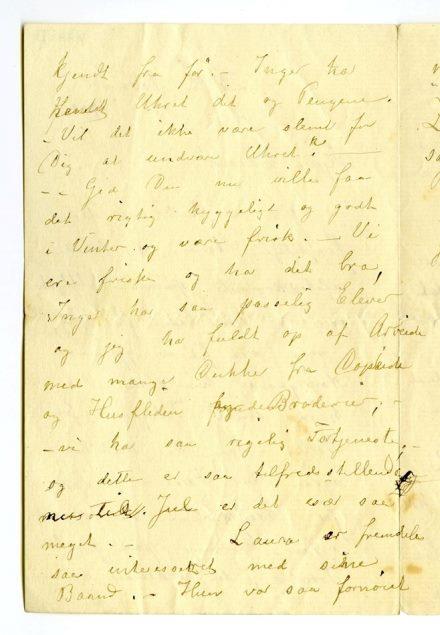 kjendt fra før. – Inger har
Hentet Uhret dit og Pengene.
– Vil det ikke være slemt for
Dig at undvære Uhret? –
– – Gid Du nu ville faa
det rigtig hyggeligt og godt
i Vinter og være frisk. – Vi
ere friske og har det bra,
Inger har saa passelig Elever
og jeg har fuldt op af Arbeide
med mange Dukker fra
og Husfliden Broderier, –
– vi har saa rigelig Fortjeneste, –
og dette er saa tilfredsstillende
Jul er det især saa
meget. – Laura er fremdeles
saa interesseret med sine
Baand. – Hun var saa fornøiet